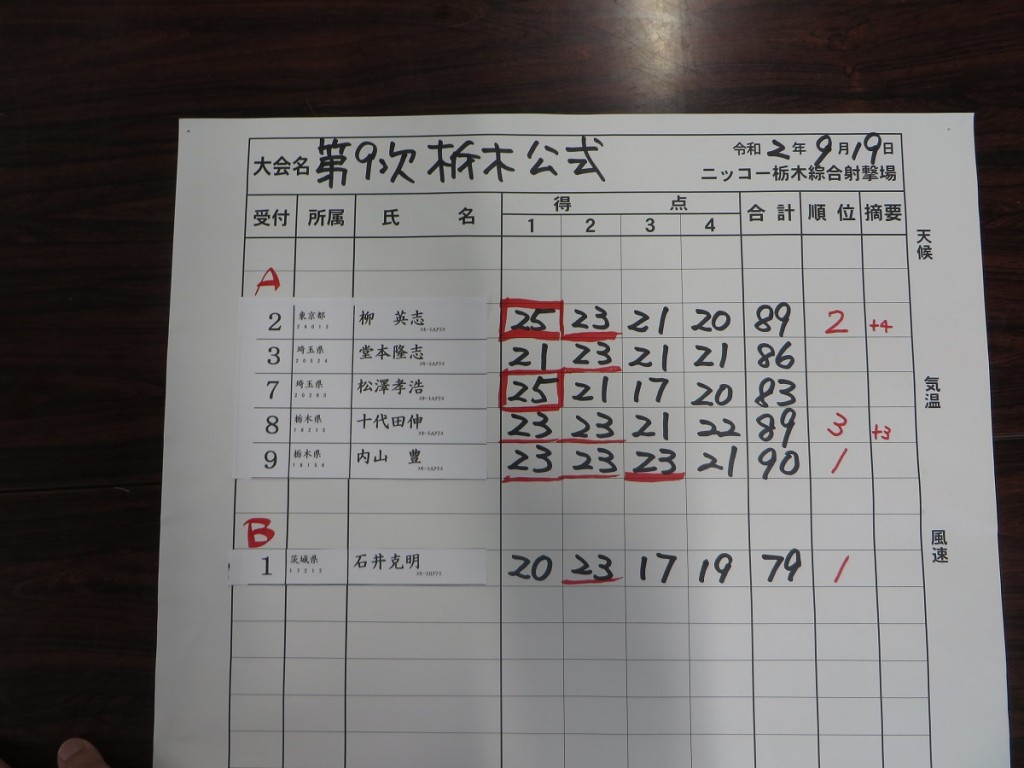 大会名 第9次 栃木公式 令和2年9月19日
ニッコー栃木綜合射撃場
受付 所属 氏名 得点 合計 順位 摘要
1 2 3 4
天候
A
2 東京都 柳 英志 25 23 21 20 89 2 +4
3 埼玉県 堂本隆志 21 23 21 21 86
7 埼玉県 松澤孝浩 25 21 17 20 83
気温
8 栃木県 十代田伸 23 23 21 22 89 3 +3
9 栃木県 内山 豊 23 23 23 21 90 1
B
風速
1 茨城県 石井克明 20 23 17 19 79 1